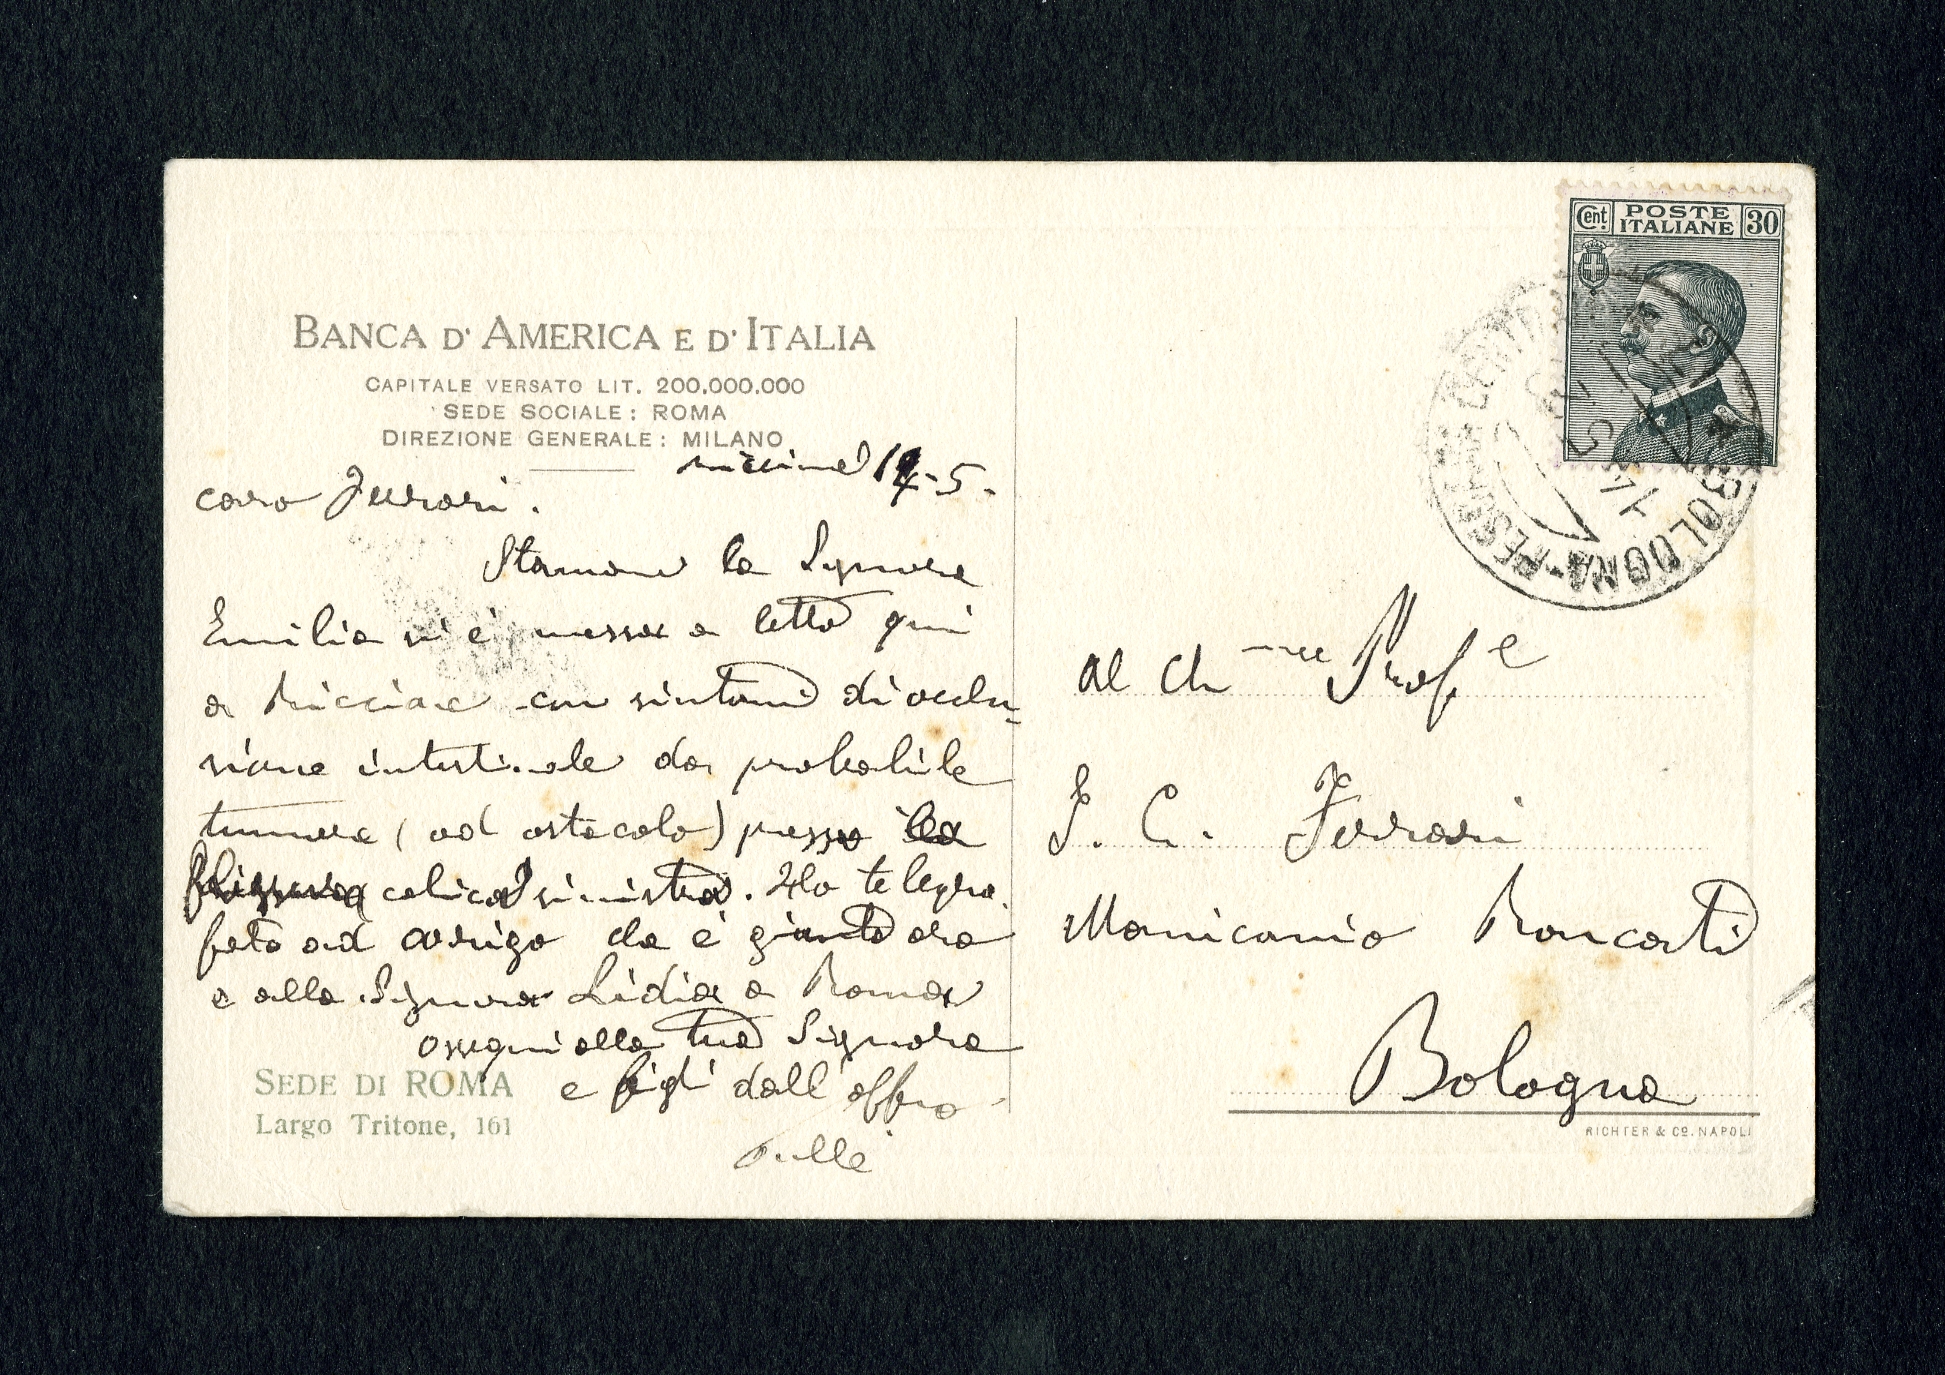 BANCA D'AMERICA E D'ITALIA
CAPITALE VERSATO LIT. 200.000.000
SEDE SOCIALE: ROMA
DIREZIONE GENERALE: MILANO
14-5-
caro Ferrari.
Stamane la Signora
Emilia si è messa a letto qui
a Riccione con sintomi di occlu-
sione intestinale da probabile
tumore (od ostacolo) presso la
colica sinistra. Ho telegra.
fato ad Arrigo che è giunto ora
e alla Signora Lidia a Roma
ossequi alla tua Signora
e figli dall'affmo
Pullè
SEDE DI ROMA
Largo Tritone, 161
Cent. POSTE ITALIANE 30
BOLOGNA
al Ch mo Prof e
G. C. Ferrari
Manicomio Roncati
Bologna
RICHTER & Co. NAPOLI